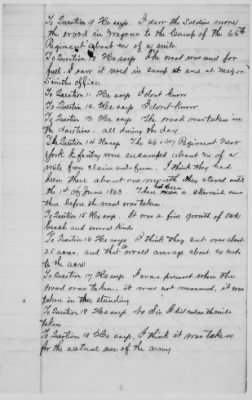 To Question 9 He says. I saw the Soldiers move
the wood in Wagons to the Camp of the 66th
Regiment about ½ of a mile
To Question 10 He says. The wood was used for
fuel. I saw it used in camp at and at Major
Smiths Office
To Question 11 He says I dont Know
To Question 12 He says I dont Know
To Question 13 He says The wood was taken in
the daytime. all during the day
To Question 14 He says. The 66 N.Y. Regiment New
York Infantry were encamped about ½ of a
mile from claimants farm. I think they had
been there about one month they stayed until
the 1st of June 1863. There had been a skirmish
there before the wood was taken.
To Question 15 He says. It was a fine growth of oak
and kinds
To Question 16 He says I think they cut over about
25 acres, and that would average about 20 cords
to the acre
To Question 17 He says I was present when the
wood was taken, it was not measured, it was
taken in tree standing
To Question 18 He says No Sir I did not see them
taken
To Question 19 He says, I think it was taken
for the actual use of the army